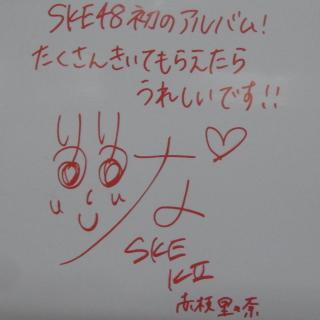 SKE48初のアルバム!
たくさんきいてもらえたら
うれしいです!!
りりな♡
SKE
KII
赤枝里々奈